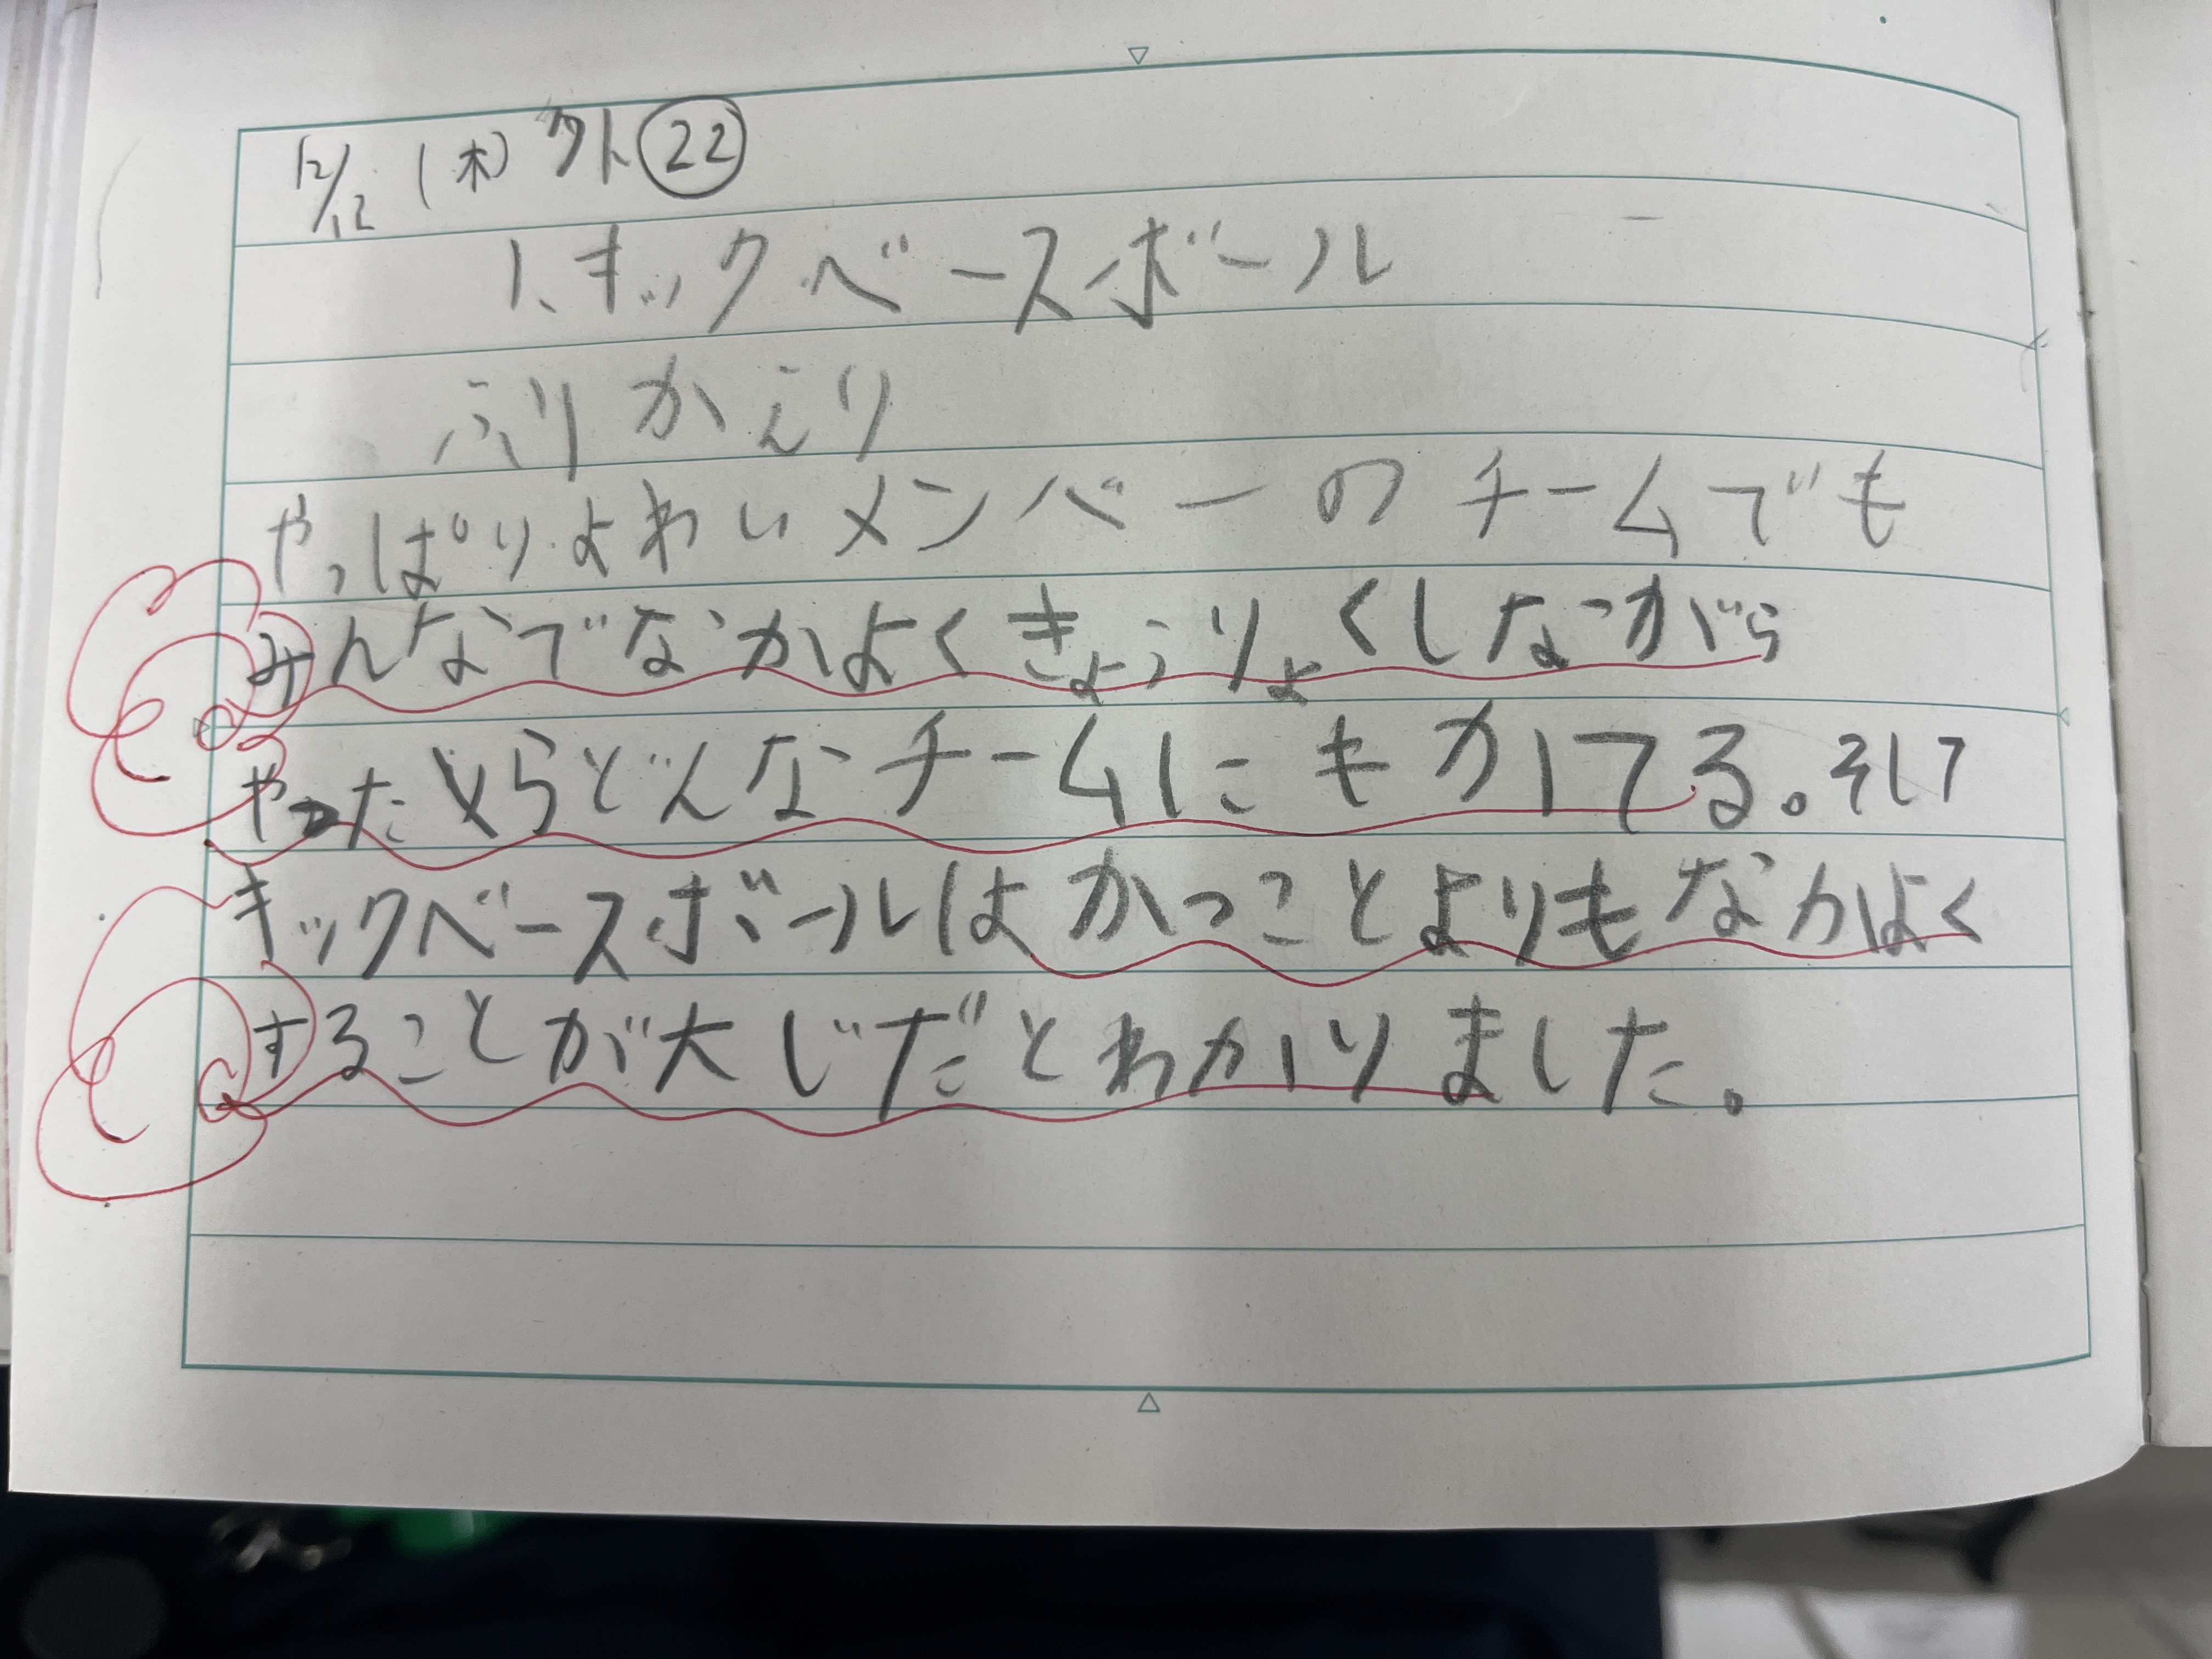 12/12 (木) 外 ㉒
1、キックベースボール
ふりかえり
やっぱりよわいメンバーのチームでも
みんなでなかよくきょうりょくしながら
やったらどんなチームにもかてる。そして
キックベースボールはかつことよりもなかよく
することが大じだとわかりました。